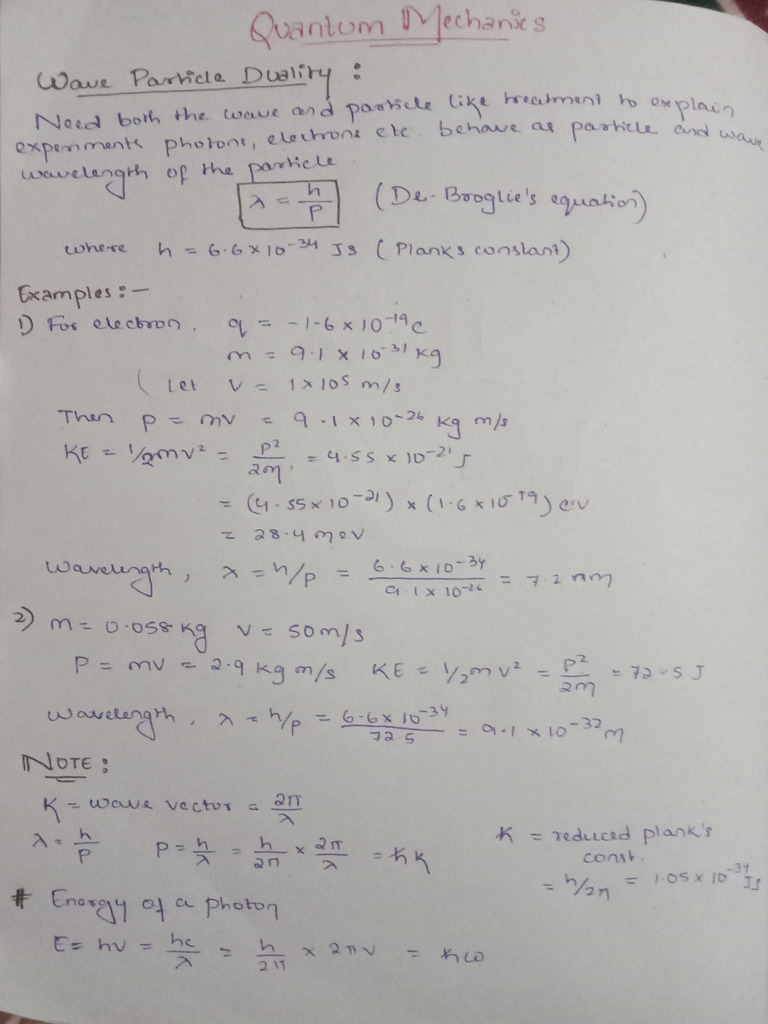 Quantum Mechanics
Wave Particle Duality :
Need both the wave and particle like treatment to explain
experiments photons, electrons etc. behave as particle and wave
wavelength of the particle.
λ = h/P (De-Broglie's equation)
where h = 6.6 × 10⁻³⁴ JS (Planks constant)
Examples :-
1) For electron, q = -1.6 × 10⁻¹⁹ C
m = 9.1 × 10⁻³¹ kg
( Let V = 1 × 10⁵ m/s
Then p = mv = 9.1 × 10⁻²⁶ kg m/s
KE = 1/2 mv² = P²/2m = 4.55 × 10⁻²¹ J
= (4.55 × 10⁻²¹) × (1.6 × 10⁻¹⁹) ev
= 28.4 mev
Wavelength, λ = h/p = 6.6 × 10⁻³⁴/9.1 × 10⁻²⁶ = 7.2 nm
2) m = 0.058 kg V = 50 m/s
P = mv = 2.9 kg m/s KE = 1/2 mv² = P²/2m = 72.5 J
Wavelength, λ = h/p = 6.6 × 10⁻³⁴/72.5 = 9.1 × 10⁻³²m
NOTE :
K = wave vector = 2π/λ
λ = h/P P = h/λ = h/2π × 2π/λ = ħK
ħ = reduced plank's
const.
= h/2π = 1.05 × 10⁻³⁴ JS
# Energy of a photon
E = hν = hc/λ = h/2π × 2πν = ħω